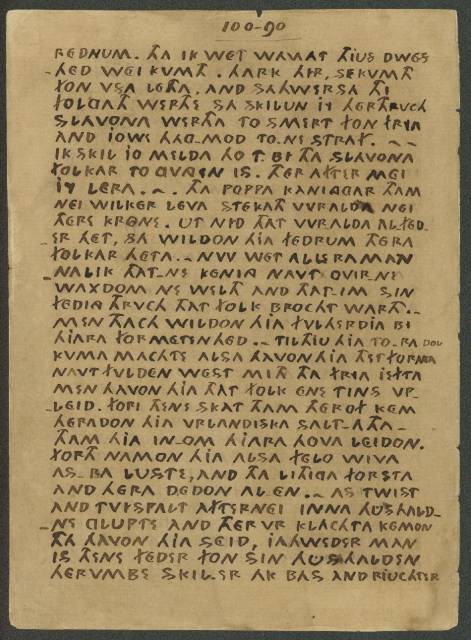 100-90
REDNUM. THA IK WET WANAT THIUS DWES
HED WEI KUMTH. HARK HIR, SE KUMTH
FON VSA LETHA, AND SAHWERSA THI
FOLGATH WERTHE SA SKILUN IY HERTHRUCH
SLAVONA WERTHA TO SMERT FON FRYA
AND IOWE HAG-MOD TO.NE STRAF.
IK SKIL IO MELDA HO T. BI THA SLAVONA
FOLKAR TO GVNGEN IS. THER AFTER MEI
IY LERA. THA POPPA KANINGGAR THAM
NEI WILKER LEVA STEKATH VVRALDA NEI
THERE KRONE. UT NYD THAT VVRALDA AL FED-
ER HET, SA WILDON HIA FEDRUM THERA
FOLKAR HETA. NVV WET ALLERA MAN-
NALIK THAT-NE KENING NAVT OVIR-NE
WAXDOM NE WELTH AND THAT-IM SIN
FEDING THRVCH THAT FOLK BROCHT WARTH.
MEN THACH WILDON HIA FVLHERDIA BI
HIARA FORMETENHED. TIL THIU HIA TO-RA DOL
KUMA MACHTE ALSA HAVON HIA THET FORMA
NAVT FULDEN WEST MITH THA FRYA IEFTA
MEN HAVON HIA THAT FOLK ENE TINS VP
LEID. FORI THENE SKAT THAM THEROF KEM
HERADON HIA VRLANDISKA SALT-ATHA-
THAM HIA IN-OM HIARA HOVA LEIDON.
FORTH NAMON HIA ALSA FELO WIVA
AS-RA LUSTE, AND THA LITHIGA FORSTA
AND HERA DEDON AL-EN. AS TWIST
AND TVYSPALT AFTERNEI INNA HUSHALD-
NE GLUPTE AND THERVR KLACHTA KEMON
THA HAVON HIA SEID, IAHWEDER MAN
IS THENE FEDER FON SIN HUSHALDEN
HERVMBE SKIL-ER HK BAS AND RIUCHTER